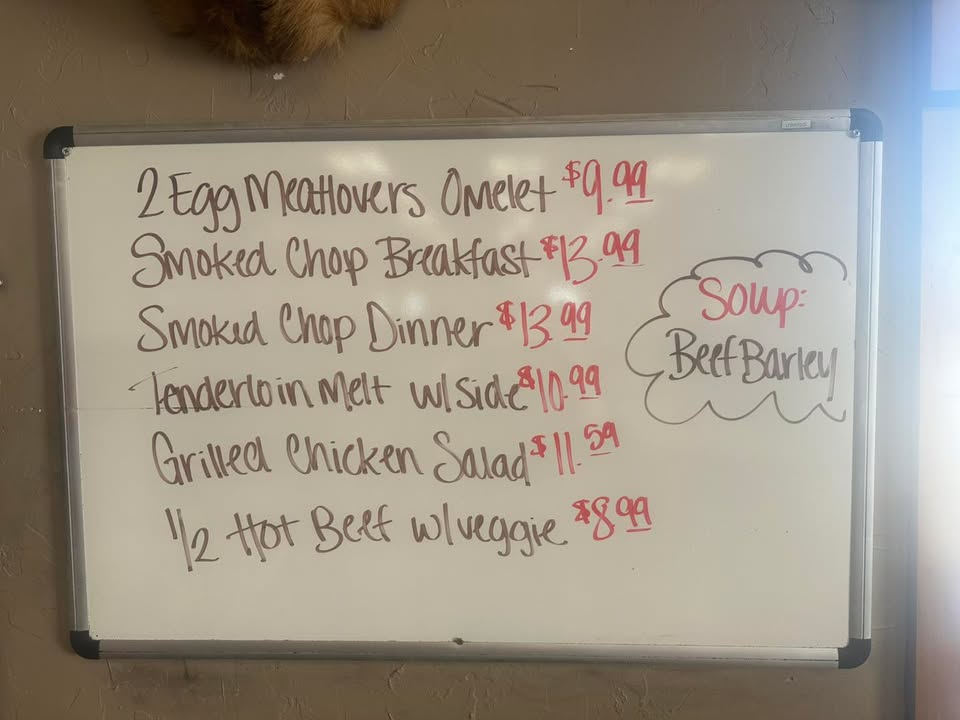 2 Egg Meatlovers Omelet $9.99
Smoked Chop Breakfast $13.99
Smoked Chop Dinner $13.99
Tenderloin Melt w/side $10.99
Grilled Chicken Salad $11.59
1/2 Hot Beef w/veggie $8.99
Soup:
Beef Barley